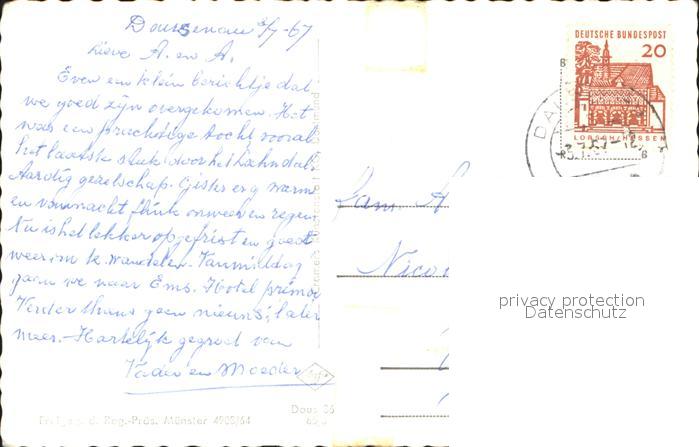 Dausenau 3/7-67
Lieve A. en A.
Even een klein berichtje dat
we goed zijn overgekomen. Het
was een prachtige tocht vooral
het laatste stuk door het Lahndal.
Aardig gezelschap. Gister erg warm
en vannacht flink onweer en regen
Nu is het lekker opgefrist en goed
weer om te wandelen. Vanmiddag
gaan we naar Ems. Hotel prima
Verder thans geen nieuws, later
meer. - Hartelijk gegroet van
Vader en Moeder
Fam. A
Nico
DEUTSCHE BUNDESPOST
20
LORSCH/HESSEN
privacy protection
Datenschutz
Reg.-Präs. Münster 4903/64
Daus 36